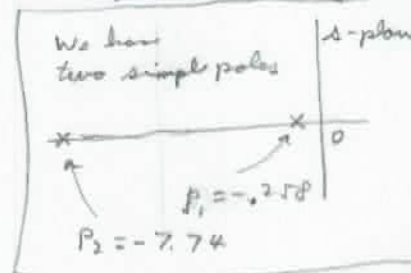 We have
two simple poles
s-plane
0
P₁ = -.258
P₂ = -7.74